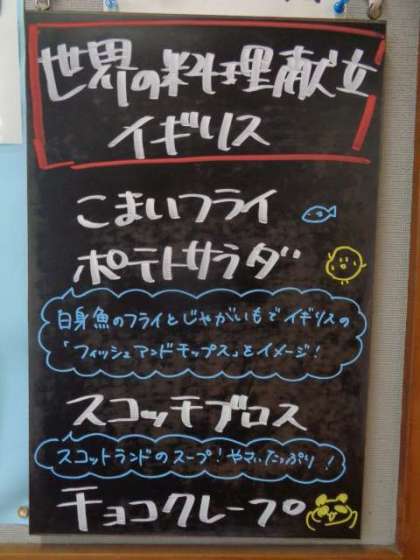 世界の料理献立
イギリス
こまいフライ
ポテトサラダ
白身魚のフライとじゃがいもでイギリスの
「フィッシュアンドチップス」をイメージ！
スコッチブロス
スコットランドのスープ！やさいたっぷり！
チョコクレープ